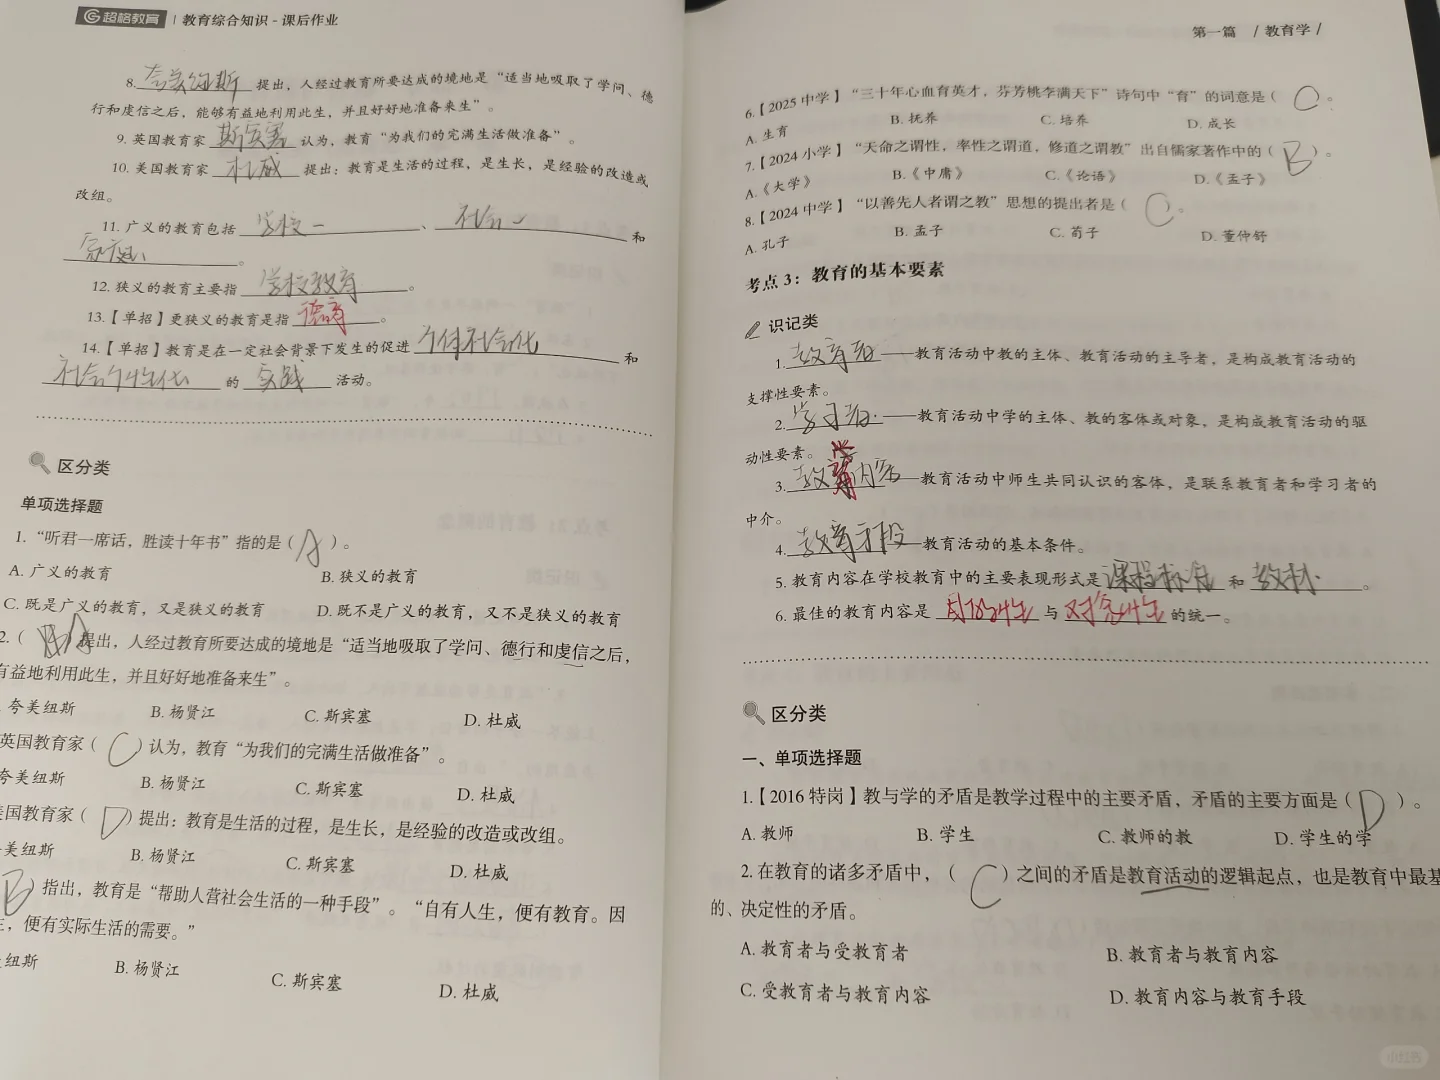 超格教育 | 教育综合知识-课后作业
8. 夸美纽斯 提出，人经过教育所要达成的境地是“适当地吸取了学问、德
行和虔信之后，能够有益地利用此生，并且好好地准备来生”。
9. 英国教育家 斯宾塞 认为，教育“为我们的完满生活做准备”。
10. 美国教育家 杜威 提出：教育是生活的过程，是生长，是经验的改造或
改组。
11. 广义的教育包括 学校～、社会～ 和
家庭～。
12. 狭义的教育主要指 学校教育。
13.【单招】更狭义的教育是指 德育。
14.【单招】教育是在一定社会背景下发生的促进 个体社会化 和
社会个性化 的 实践 活动。
区分类
单项选择题
1. “听君一席话，胜读十年书”指的是（ A ）。
A. 广义的教育 B. 狭义的教育
C. 既是广义的教育，又是狭义的教育 D. 既不是广义的教育，又不是狭义的教育
2.（ A ）提出，人经过教育所要达成的境地是“适当地吸取了学问、德行和虔信之后，
有益地利用此生，并且好好地准备来生”。
. 夸美纽斯 B. 杨贤江 C. 斯宾塞 D. 杜威
英国教育家（ C ）认为，教育“为我们的完满生活做准备”。
夸美纽斯 B. 杨贤江 C. 斯宾塞 D. 杜威
美国教育家（ D ）提出：教育是生活的过程，是生长，是经验的改造或改组。
美纽斯 B. 杨贤江 C. 斯宾塞 D. 杜威
B ）指出，教育是“帮助人营社会生活的一种手段”。“自有人生，便有教育。因
，便有实际生活的需要。”
纽斯 B. 杨贤江 C. 斯宾塞 D. 杜威
第一篇 / 教育学 /
6.【2025中学】“三十年心血育英才，芬芳桃李满天下”诗句中“育”的词意是（ C ）。
A. 生育 B. 抚养 C. 培养 D. 成长
7.【2024小学】“天命之谓性，率性之谓道，修道之谓教”出自儒家著作中的（ B ）。
A.《大学》 B.《中庸》 C.《论语》 D.《孟子》
8.【2024中学】“以善先人者谓之教”思想的提出者是（ C ）。
A. 孔子 B. 孟子 C. 荀子 D. 董仲舒
考点3：教育的基本要素
识记类
1. 教育者——教育活动中教的主体、教育活动的主导者，是构成教育活动的
支撑性要素。
2. 学习者——教育活动中学的主体、教的客体或对象，是构成教育活动的驱
动性要素。
3. 教育内容——教育活动中师生共同认识的客体，是联系教育者和学习者的
中介。
4. 教育手段——教育活动的基本条件。
5. 教育内容在学校教育中的主要表现形式是 课程标准 和 教材。
6. 最佳的教育内容是 目的性 与 对象性 的统一。
区分类
一、单项选择题
1.【2016特岗】教与学的矛盾是教学过程中的主要矛盾，矛盾的主要方面是（ D ）。
A. 教师 B. 学生 C. 教师的教 D. 学生的学
2. 在教育的诸多矛盾中，（ C ）之间的矛盾是教育活动的逻辑起点，也是教育中最基
的、决定性的矛盾。
A. 教育者与受教育者 B. 教育者与教育内容
C. 受教育者与教育内容 D. 教育内容与教育手段
小红书